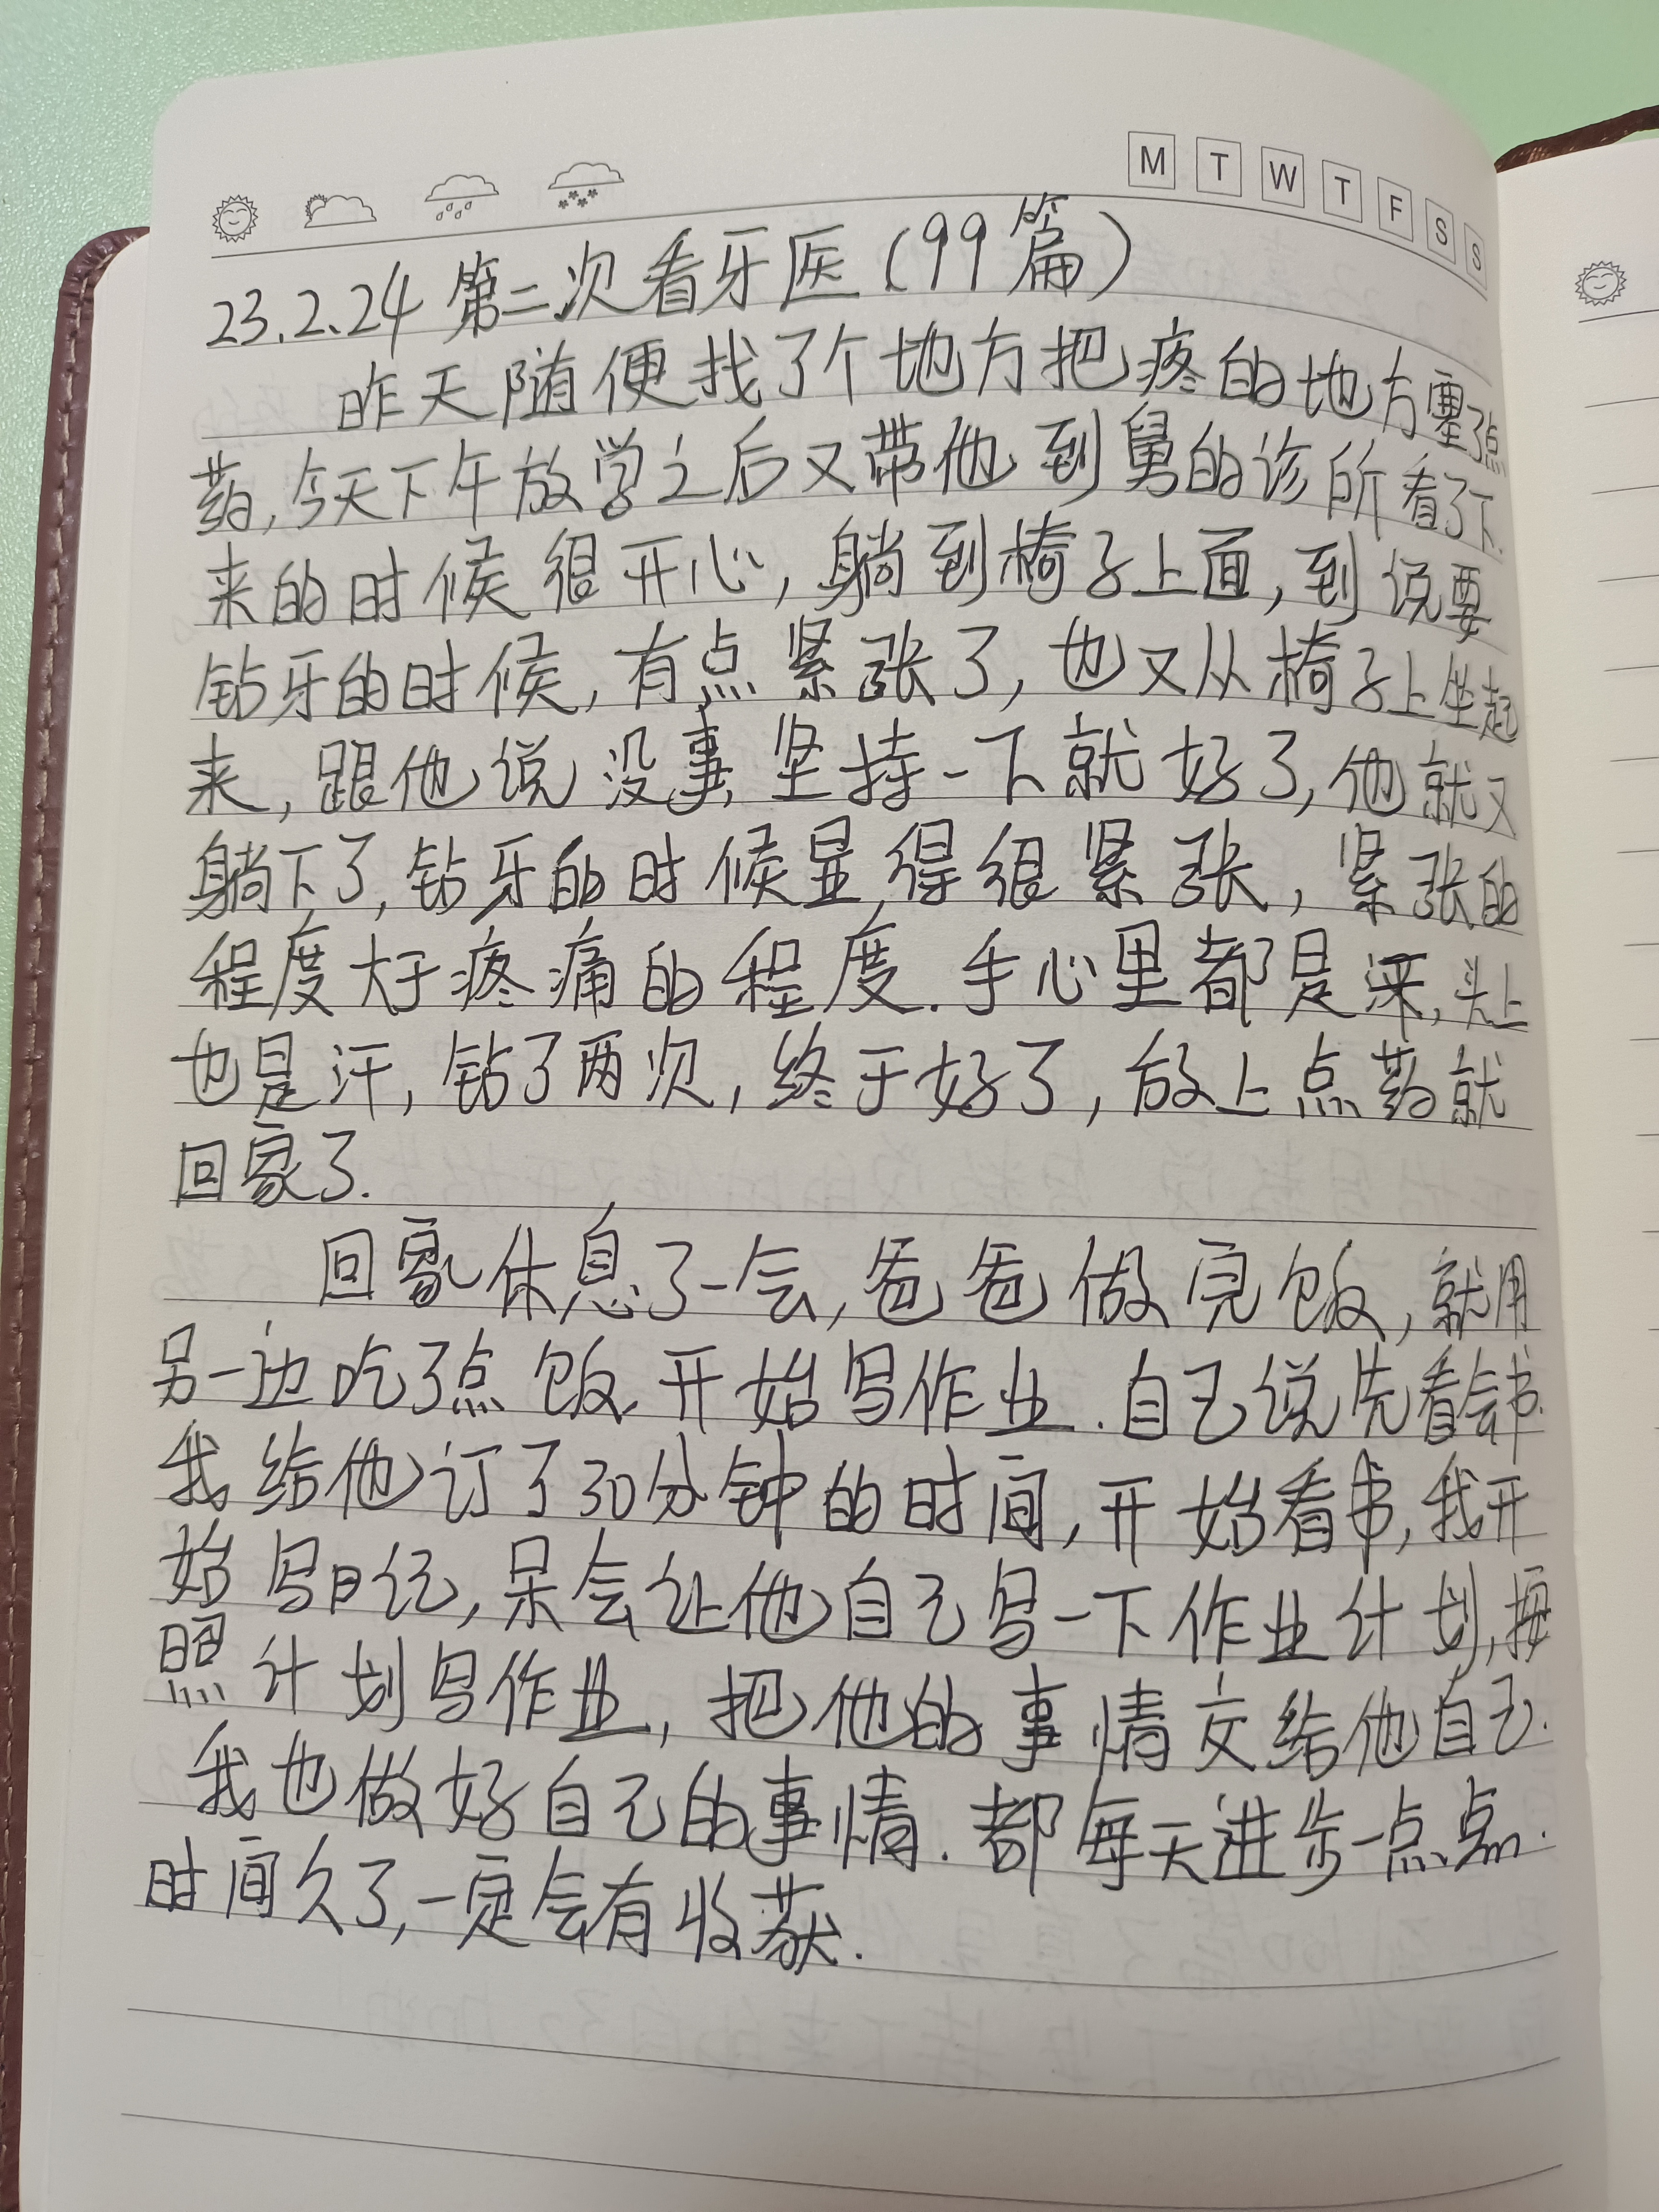 M T W T F S S
23.2.24 第二次看牙医(99篇)
昨天随便找了个地方把疼的地方塞了点
药,今天下午放学之后又带他到舅的诊所看了下.
来的时候很开心,躺到椅子上面,到说要
钻牙的时候,有点紧张了,也又从椅子上坐起
来,跟他说没事,坚持一下就好了,他就又
躺下了,钻牙的时候显得很紧张,紧张的
程度大于疼痛的程度.手心里都是,头上
也是汗,钻了两次,终于好了,放上点药就
回家了.
回家休息了一会,爸爸做完饭,就用
另一边吃了点饭.开始写作业.自己说先看会书.
我给他订了30分钟的时间,开始看书,我开
始写日记,呆会让他自己写一下作业计划,按
照计划写作业,把他的事情交给他自己.
我也做好自己的事情.都每天进步一点点.
时间久了,一定会有收获.